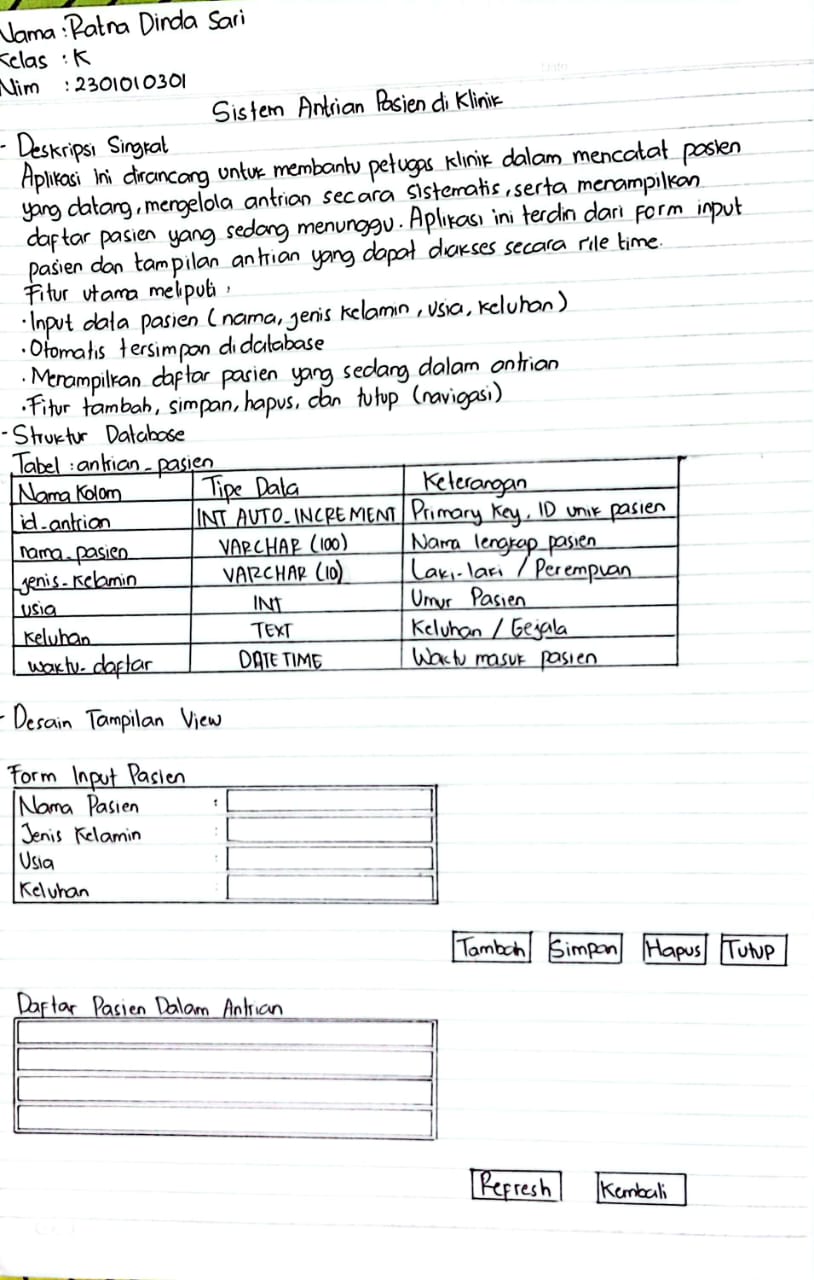 Nama : Ratna Dinda Sari
Kelas : K
Nim : 2301010301
Sistem Antrian Pasien di Klinik
- Deskripsi Singkat
Aplikasi ini dirancang untuk membantu petugas klinik dalam mencatat pasien
yang datang, mengelola antrian secara sistematis, serta menampilkan
daftar pasien yang sedang menunggu. Aplikasi ini terdiri dari form input
pasien dan tampilan antrian yang dapat diakses secara rile time.
Fitur utama meliputi,
· Input data pasien (nama, jenis kelamin, usia, keluhan)
· Otomatis tersimpan di database
· Menampilkan daftar pasien yang sedang dalam antrian
· Fitur tambah, simpan, hapus, dan tutup (navigasi)
- Struktur Database
Tabel : antrian_pasien
Nama Kolom Tipe Data Keterangan
id_antrian INT AUTO_INCREMENT Primary Key, ID unik pasien
nama_pasien VARCHAR (100) Nama lengkap pasien
jenis_kelamin VARCHAR (10) Laki-laki / Perempuan
usia INT Umur Pasien
keluhan TEXT Keluhan / Gejala
waktu_daftar DATE TIME Waktu masuk pasien
- Desain Tampilan View
Form Input Pasien
Nama Pasien :
Jenis Kelamin :
Usia :
Keluhan :
Tambah Simpan Hapus Tutup
Daftar Pasien Dalam Antrian
Refresh Kembali